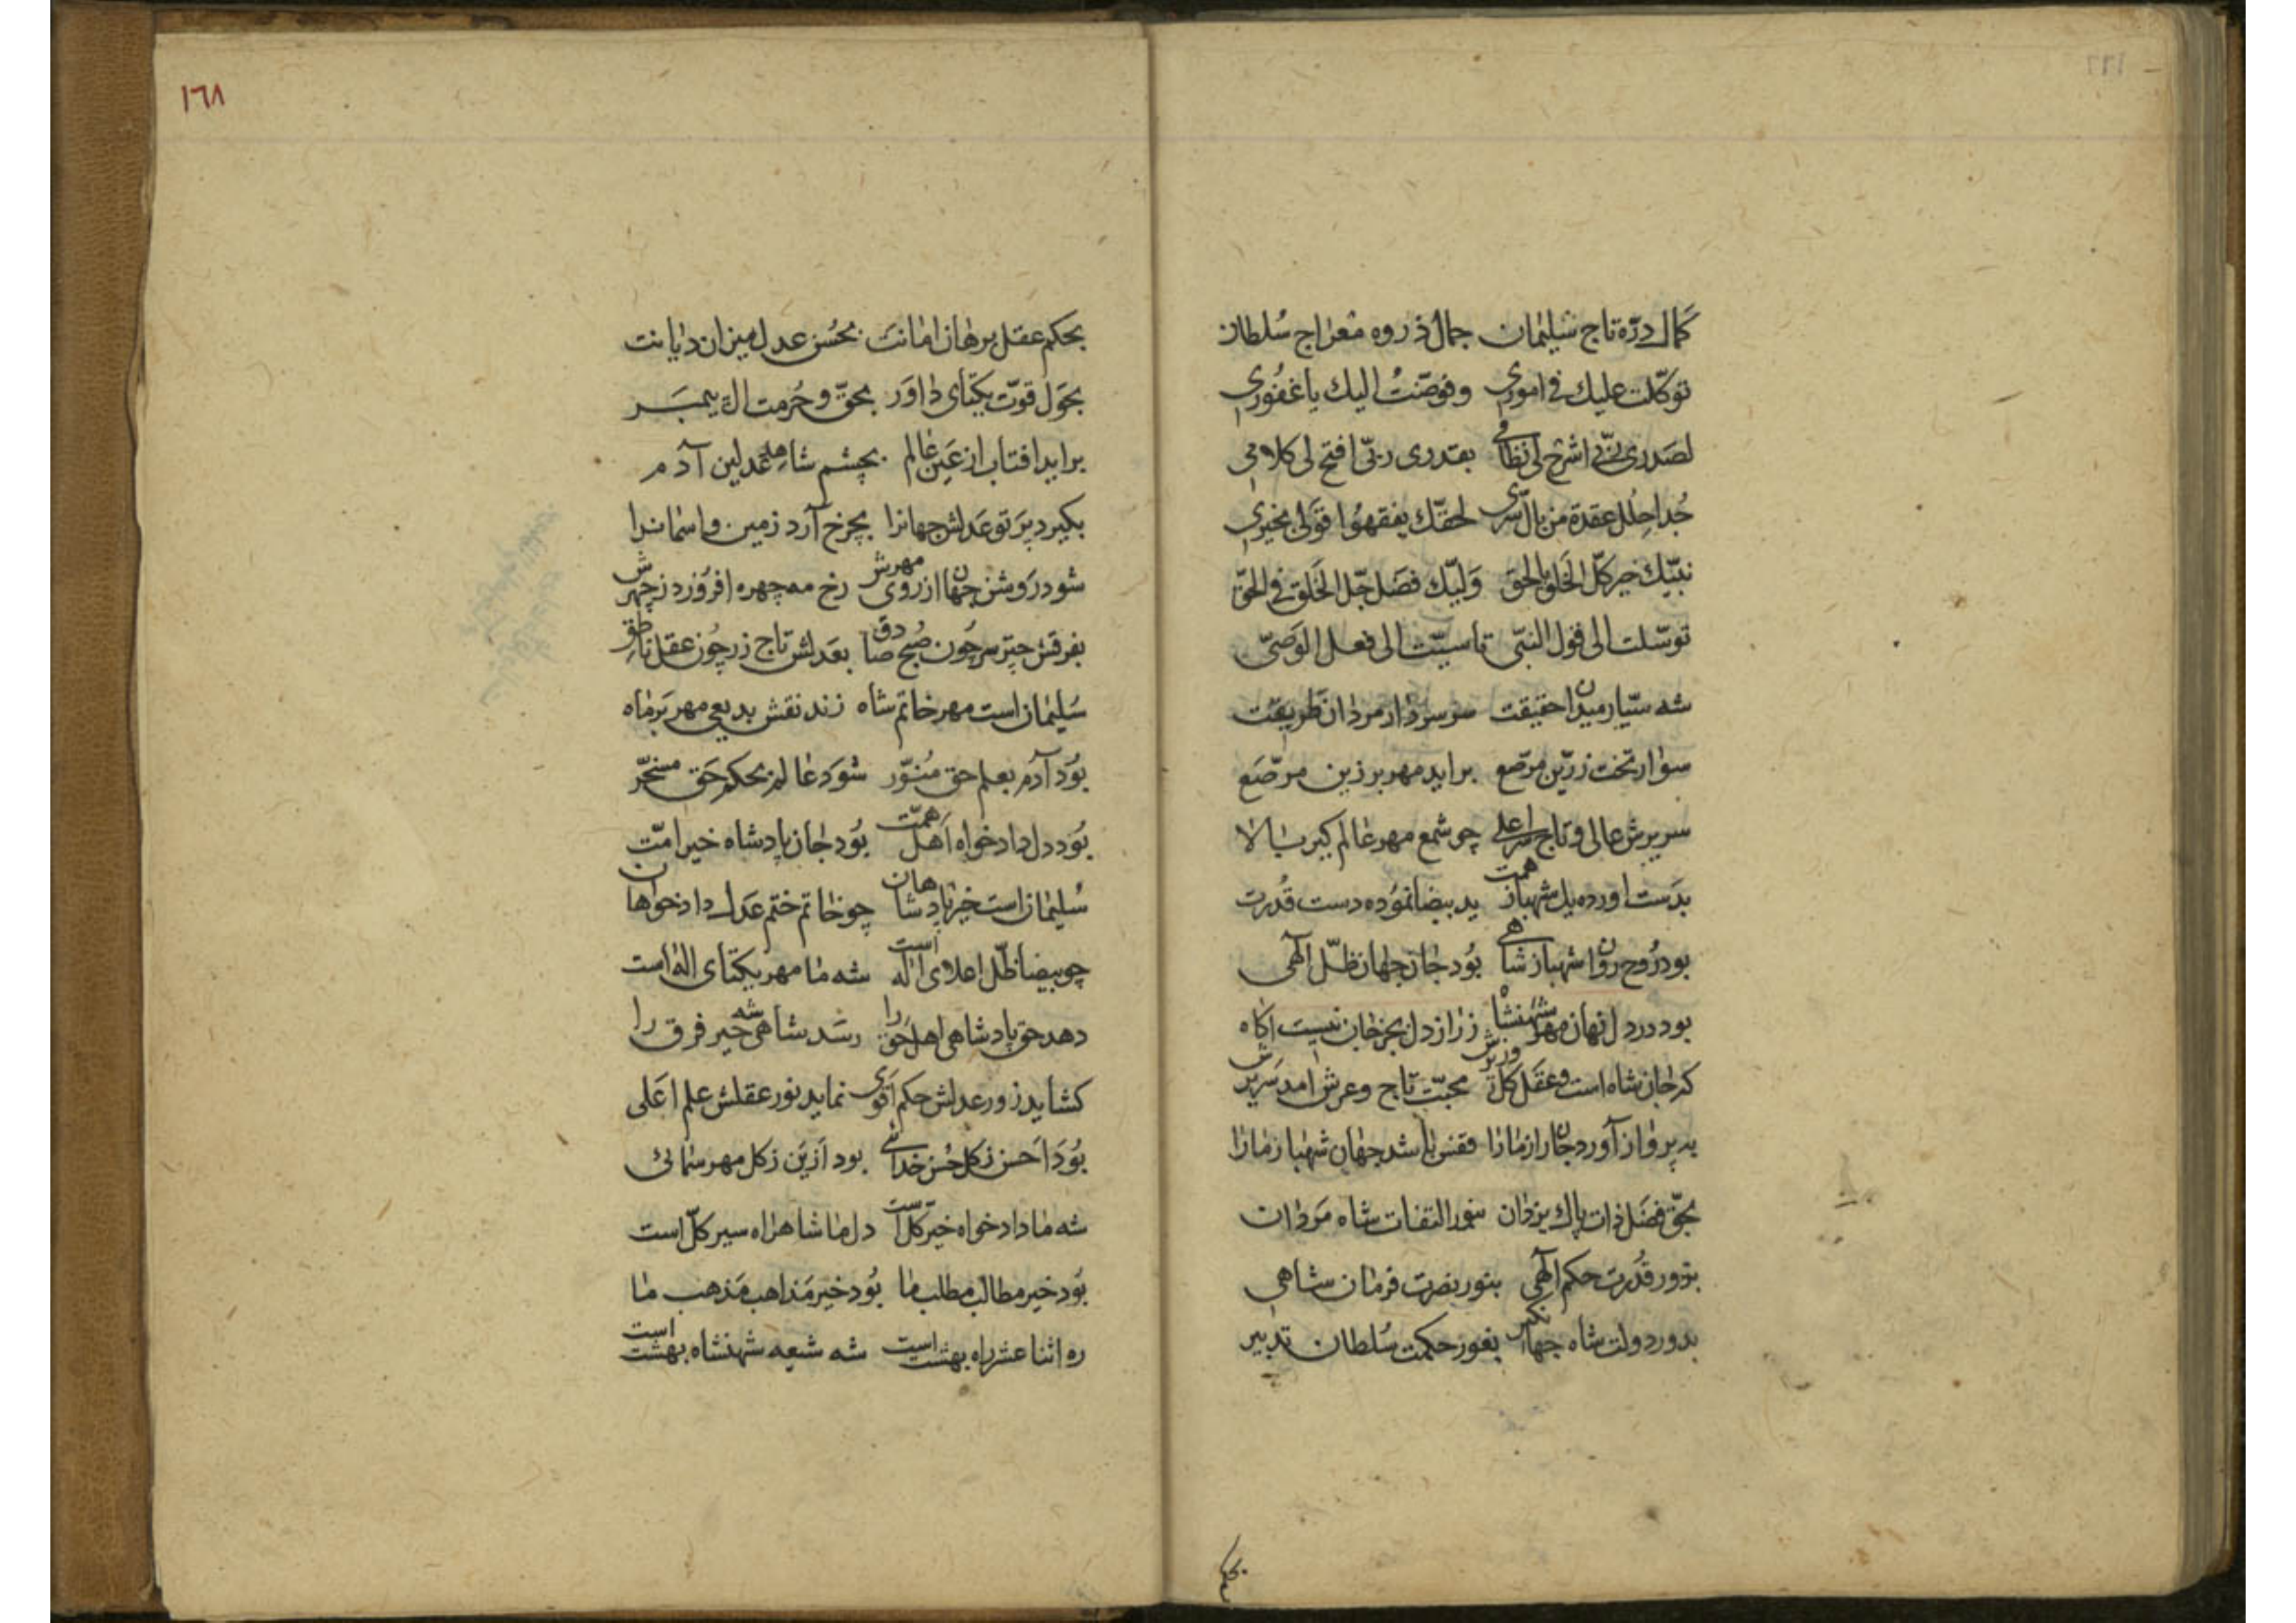 كمال درّه تاج سليمان جمال ذروه معراج سلطان
توكّلت عليك فى امورى وفوّضت اليك يا غفورى
لصدرى ربّى اشرح لى نظامى بقدرى ربّى افتح لى كلامى
لحقّك يفقهوا قولى بخيرى
نبيّك خير كلّ الخلق بالحق وليّك فضل جلّ الخلق فى الحقّ
توسّلت الى قول النبّى تاسيّت الى فعل الوصىّ
شه سيّار ميدان حقيقت سر سردار مردان طريقت
سوار تخت زرّين مرصّع برايد مهر بر زين مرصّع
سريرش عالى و تاج چو شمع مهر عالم كير بالا
بدست اورده يل شهباز همت يد بيضا نموده دست قدرت
بود روح روان شهباز شاهى بود جان جهان ظلّ الهى
بود در دل نهان مهر شهنشاه ز راز دل بجز جان نيست اكاه
كه جان شاه است و عقل كل وزيرش محبّت تاج و عرش امد سريرش
به پرواز آورد جان را زمارا قفس باشد جهان شهباز مارا
بحقّ فضل ذات پاك يزدان بنور التفات شاه مردان
بزور قدرت حكم الهى بنور نصرت فرمان شاهى
بدور دولت شاه جهانكير بغور حكمت سلطان تدبير
بحكم
١٦٨
بحكم عقل برهان امانت بحسن عدل ميزان ديانت
بحول قوّت يكتاى داور بحقّ و حرمت
برايد افتاب از عين عالم بچشم شاه
بكيرد پرتو عدلش جهانرا بچرخ آرد زمين و اسمانرا
شود روشن جهان از روى مهرش رخ مه چهره افروزد ز چهرش
بفرقش چتر سر چون صبح صادق بعدلش تاج زر چون عقل ناطق
سليمان است مهر خاتم شاه زند نقش بديعى مهر بر ماه
بود آدم بعلم حق منوّر شود عالم بحكم حق مسخّر
بود دل دادخواه اهل همّت بود جان پادشاه خير امّت
سليمان است خير پادشاهان چو خاتم ختم عدل دادخواهان
چو بيضا ظلّ اعلاى اله است شه ما مهر يكتاى اله است
دهد حق پادشاهى اهل حق را رسد شاهنشهى خير فرق را
كشايد زور عدلش حكم اقوى نمايد نور عقلش علم اعلى
بود احسن ز كل حسن خدائى بود ازين ز كل مهر سمائى
شه ما دادخواه خير كلّ است دل ما شاهراه سير كلّ است
بود خير مطالب مطلب ما بود خير مذاهب مذهب ما
ره اثنا عشر راه بهشت است شه شيعه شهنشاه بهشت است